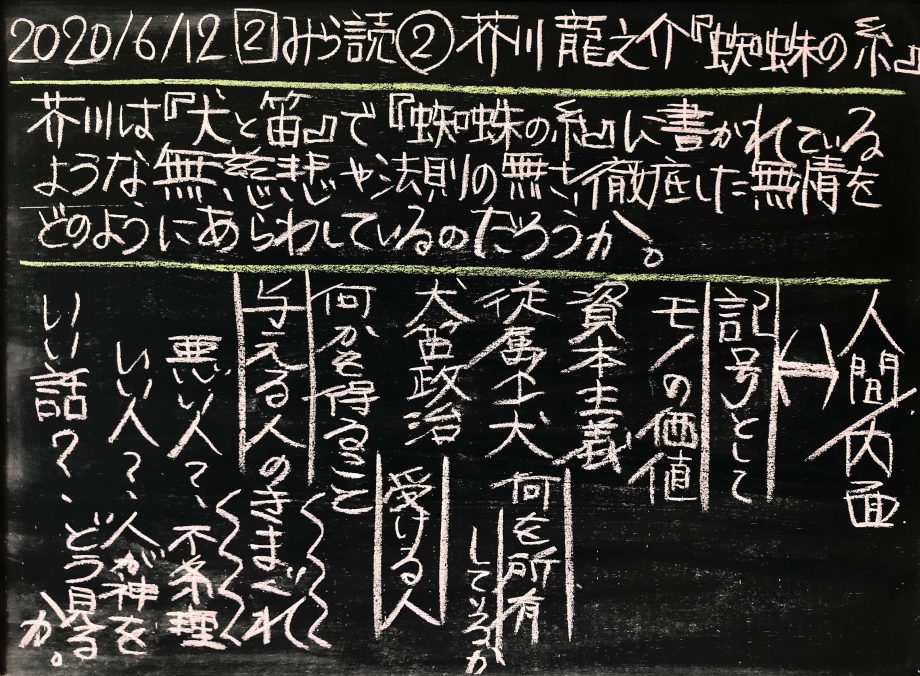 2020/6/12 2 みら読② 芥川龍之介『蜘蛛の糸』
芥川は『犬と笛』で『蜘蛛の糸』に書かれている
ような無慈悲や法則の無さ、徹底した無情を
どのようにあらわしているのだろうか。
人間/内面
↔
記号として
モノの価値
資本主義
何を所有
しているか
従属←犬
犬笛政治
受ける人
何かを得ること
与える人のきまぐれ
悪い人?、不条理
いい人?、人が神を
いい話?、どう見る
か。